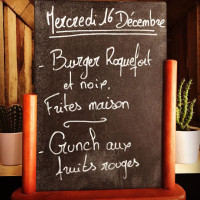 Mercredi 16 Décembre
- Burger Roquefort
et noix.
Frites maison
- Crunch aux
fruits rouges